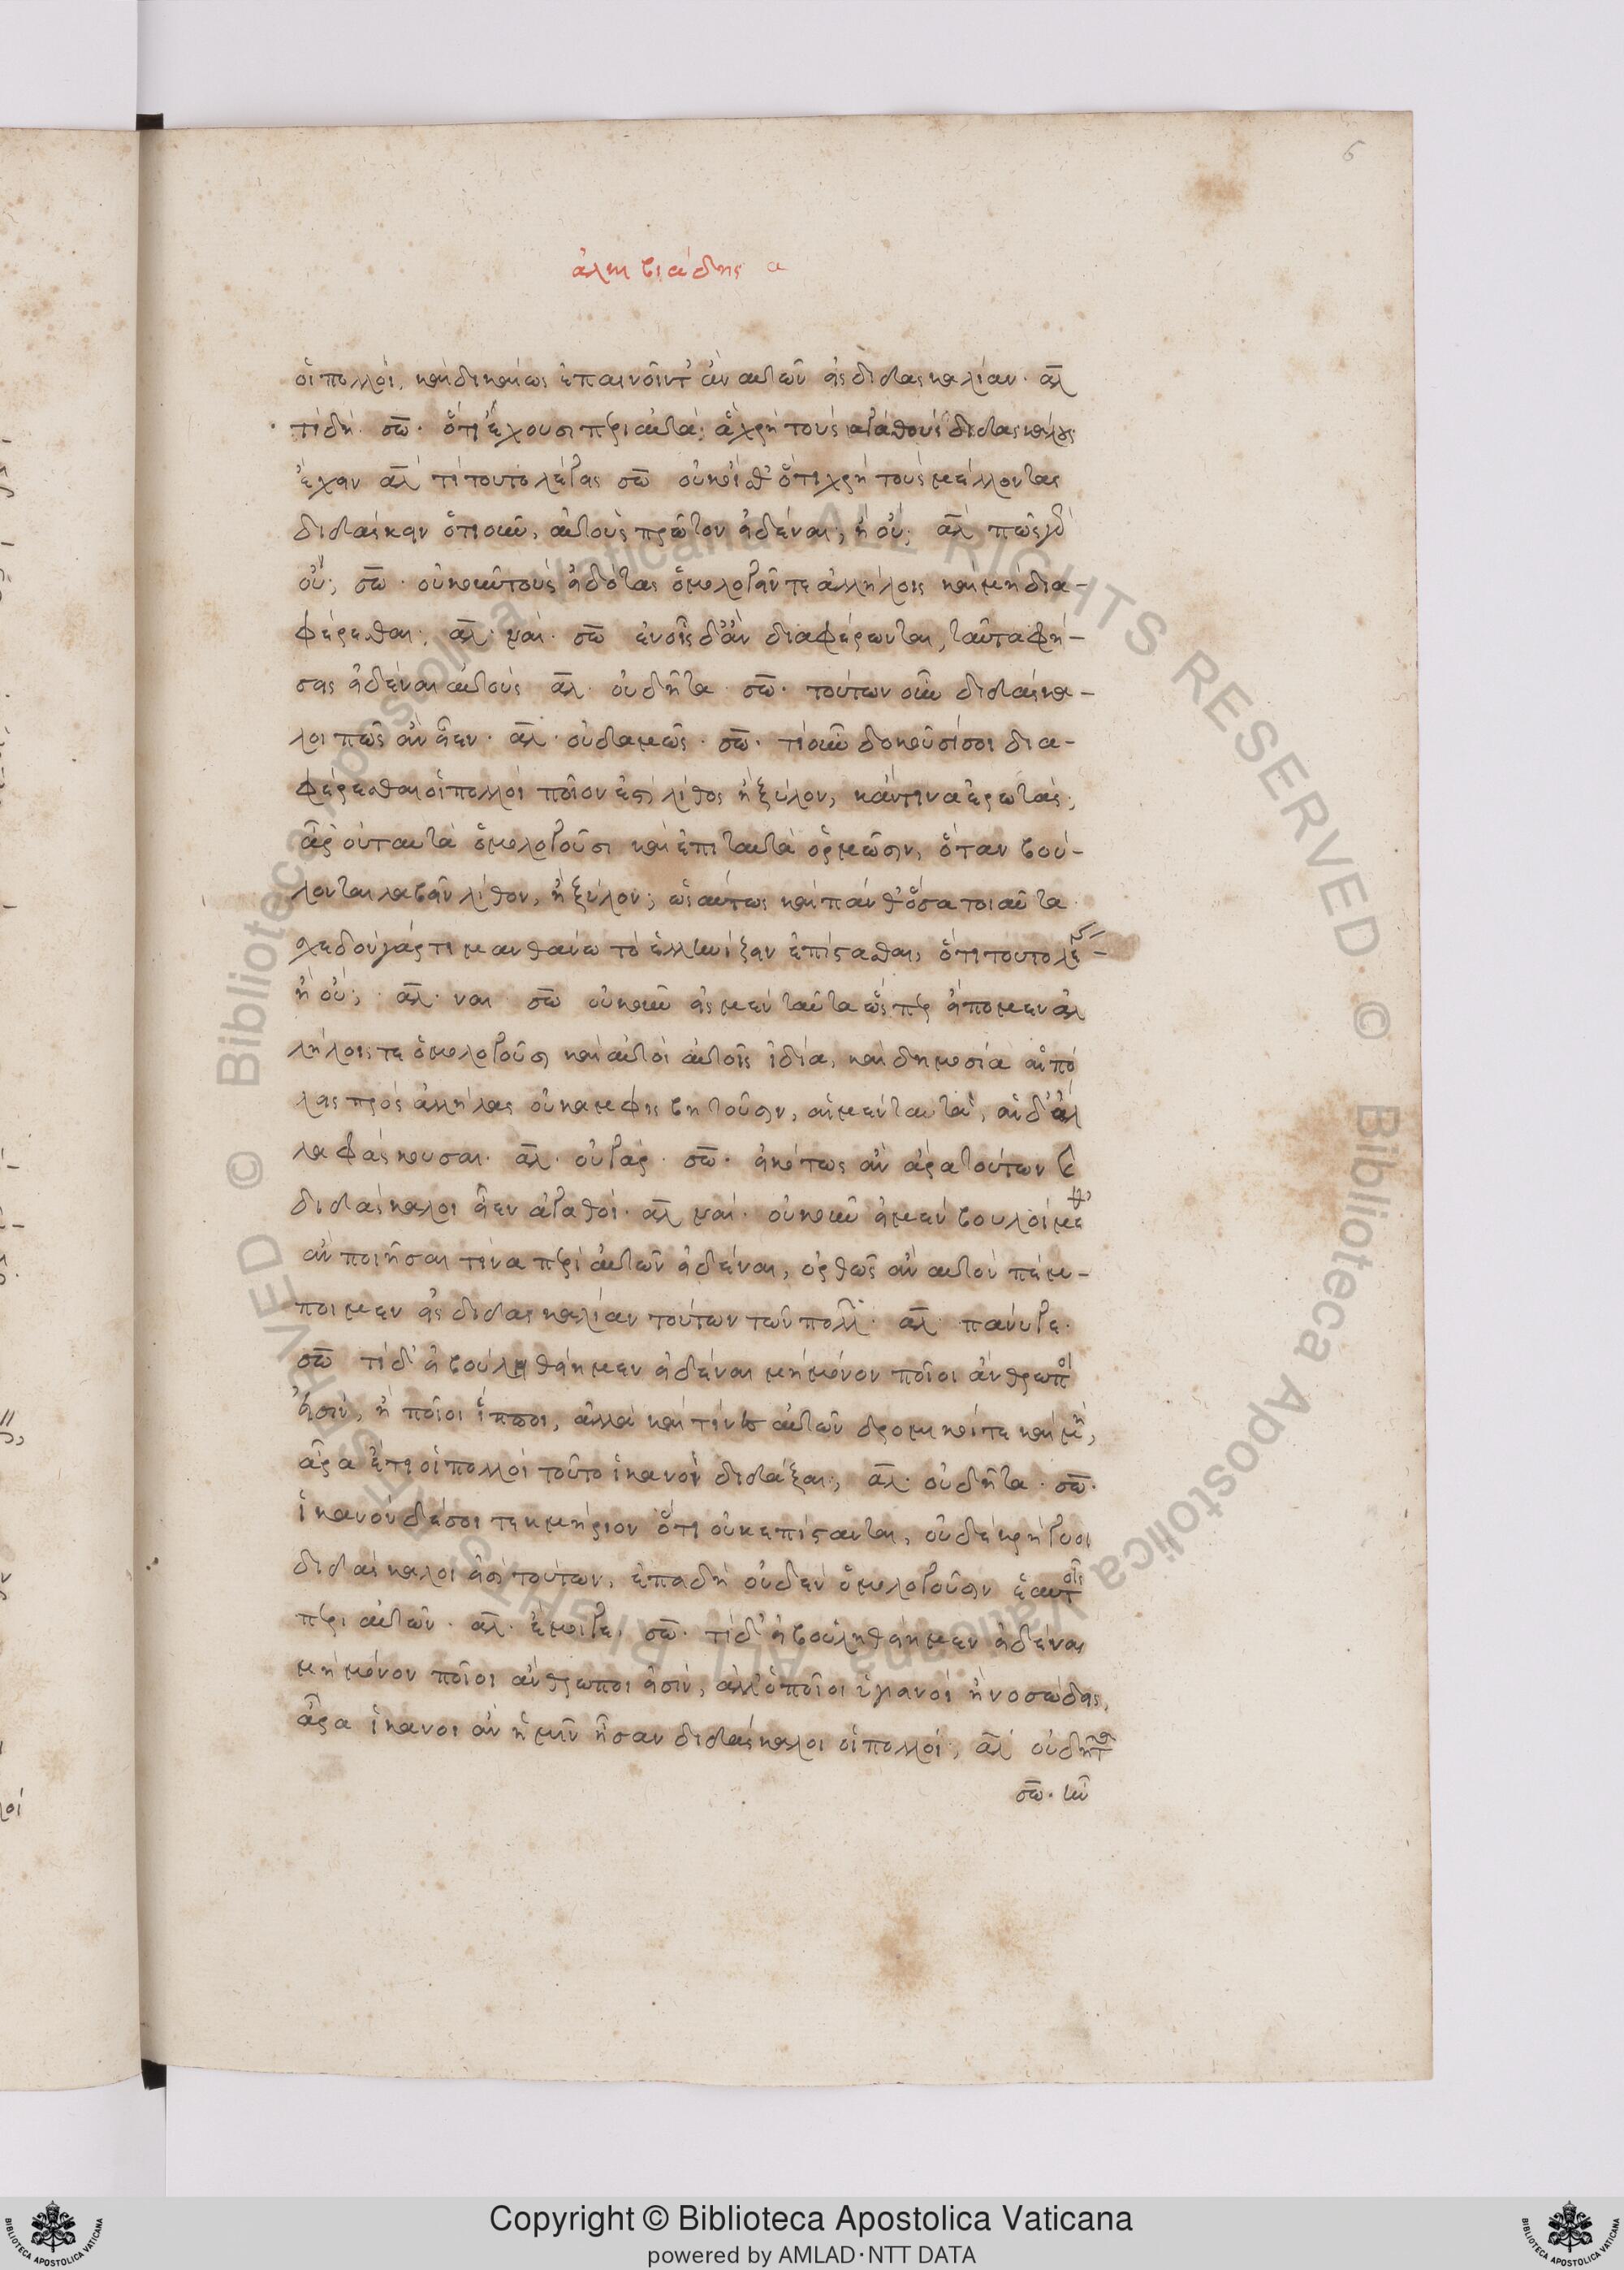 6
ἀλκιβιάδης α
οἱ πολλοί, καὶ δικαίως ἐπαινοῖντ' ἂν αὐτῶν εἰς διδασκαλίαν. αλ
τί δή. σω. ὅτι ἔχουσι περὶ αὐτά, ἃ χρὴ τοὺς ἀγαθοὺς διδασκάλους
ἔχειν αλ τί τοῦτο λέγεις σω οὐκ οἶσθ' ὅτι χρὴ τοὺς μέλλοντας
διδάσκειν ὁτιοῦν, αὐτοὺς πρῶτον εἰδέναι, ἢ οὔ; αλ πῶς γὰρ
οὔ; σω. οὐκοῦν τοὺς εἰδότας ὁμολογεῖν τε ἀλλήλοις καὶ μὴ δια-
φέρεσθαι; αλ. ναί. σω ἐν οἷς δ' ἂν διαφέρωνται, ταῦτα φή-
σεις εἰδέναι αὐτούς αλ. οὐ δῆτα. σω. τούτων οὖν διδάσκα-
λοι πῶς ἂν εἶεν. αλ. οὐδαμῶς. σω. τί οὖν δοκοῦσί σοι δια-
φέρεσθαι οἱ πολλοὶ ποῖον ἐστὶ λίθος ἢ ξύλον, κἄν τινα ἐρωτᾷς;
ἆρ' οὐ ταὐτὰ ὁμολογοῦσι καὶ ἐπὶ ταὐτὰ ὁρμῶσιν, ὅταν βού-
λονται λαβεῖν λίθον, ἢ ξύλον; ὡσαύτως καὶ πάνθ' ὅσα τοιαῦτα
σχεδὸν γάρ τι μανθάνω τὸ ἑλληνίζειν ἐπίστασθαι, ὅτι τοῦτο λέγεις
ἢ οὔ; αλ. ναι σω οὐκοῦν εἰς μὲν ταῦτα ὥσπερ εἴπομεν ἀλ
λήλοις τε ὁμολογοῦσι καὶ αὐτοὶ αὑτοῖς ἰδίᾳ, καὶ δημοσίᾳ αἱ πό
λεις πρὸς ἀλλήλας οὐκ ἀμφισβητοῦσιν, αἱ μὲν ταῦτα, αἱ δ' ἄλ
λα φάσκουσαι. αλ. οὐ γάρ. σω. εἰκότως ἂν ἄρα τούτων καὶ
διδάσκαλοι εἶεν ἀγαθοί. αλ ναί. οὐκοῦν εἰ μὲν βουλοίμεθ'
ἂν ποιῆσαι τινὰ περὶ αὐτῶν εἰδέναι, ὀρθῶς ἂν αὐτὸν πέμ-
ποιμεν εἰς διδασκαλίαν τούτων τῶν πολλῶν. αλ. πάνυ γε.
σω τί δ' εἰ βουληθείημεν εἰδέναι μὴ μόνον ποῖοι ἄνθρωποι
εἰσίν, ἢ ποῖοι ἵπποι, ἀλλὰ καὶ τίνες αὐτῶν δρομικοί τε καὶ μή,
ἆρα ἔτι οἱ πολλοὶ τοῦτο ἱκανοὶ διδάξαι; αλ. οὐ δῆτα. σω.
ἱκανὸν δέ σοι τεκμήριον ὅτι οὐκ ἐπίστανται, οὐδὲ κρήγυοι
διδάσκαλοι εἰσὶ τούτων, ἐπειδὴ οὐδὲν ὁμολογοῦσιν ἑαυτοῖς
περὶ αὐτῶν. αλ. ἔμοιγε. σω. τί δ' εἰ βουληθείημεν εἰδέναι
μὴ μόνον ποῖοι ἄνθρωποι εἰσίν, ἀλλ' ὁποῖοι ὑγιεινοὶ ἢ νοσώδεις,
ἆρα ἱκανοὶ ἂν ἡμῖν ἦσαν διδάσκαλοι οἱ πολλοί; αλ οὐ δῆτα
σω. ἦν
Copyright © Biblioteca Apostolica Vaticana
powered by AMLAD·NTT DATA